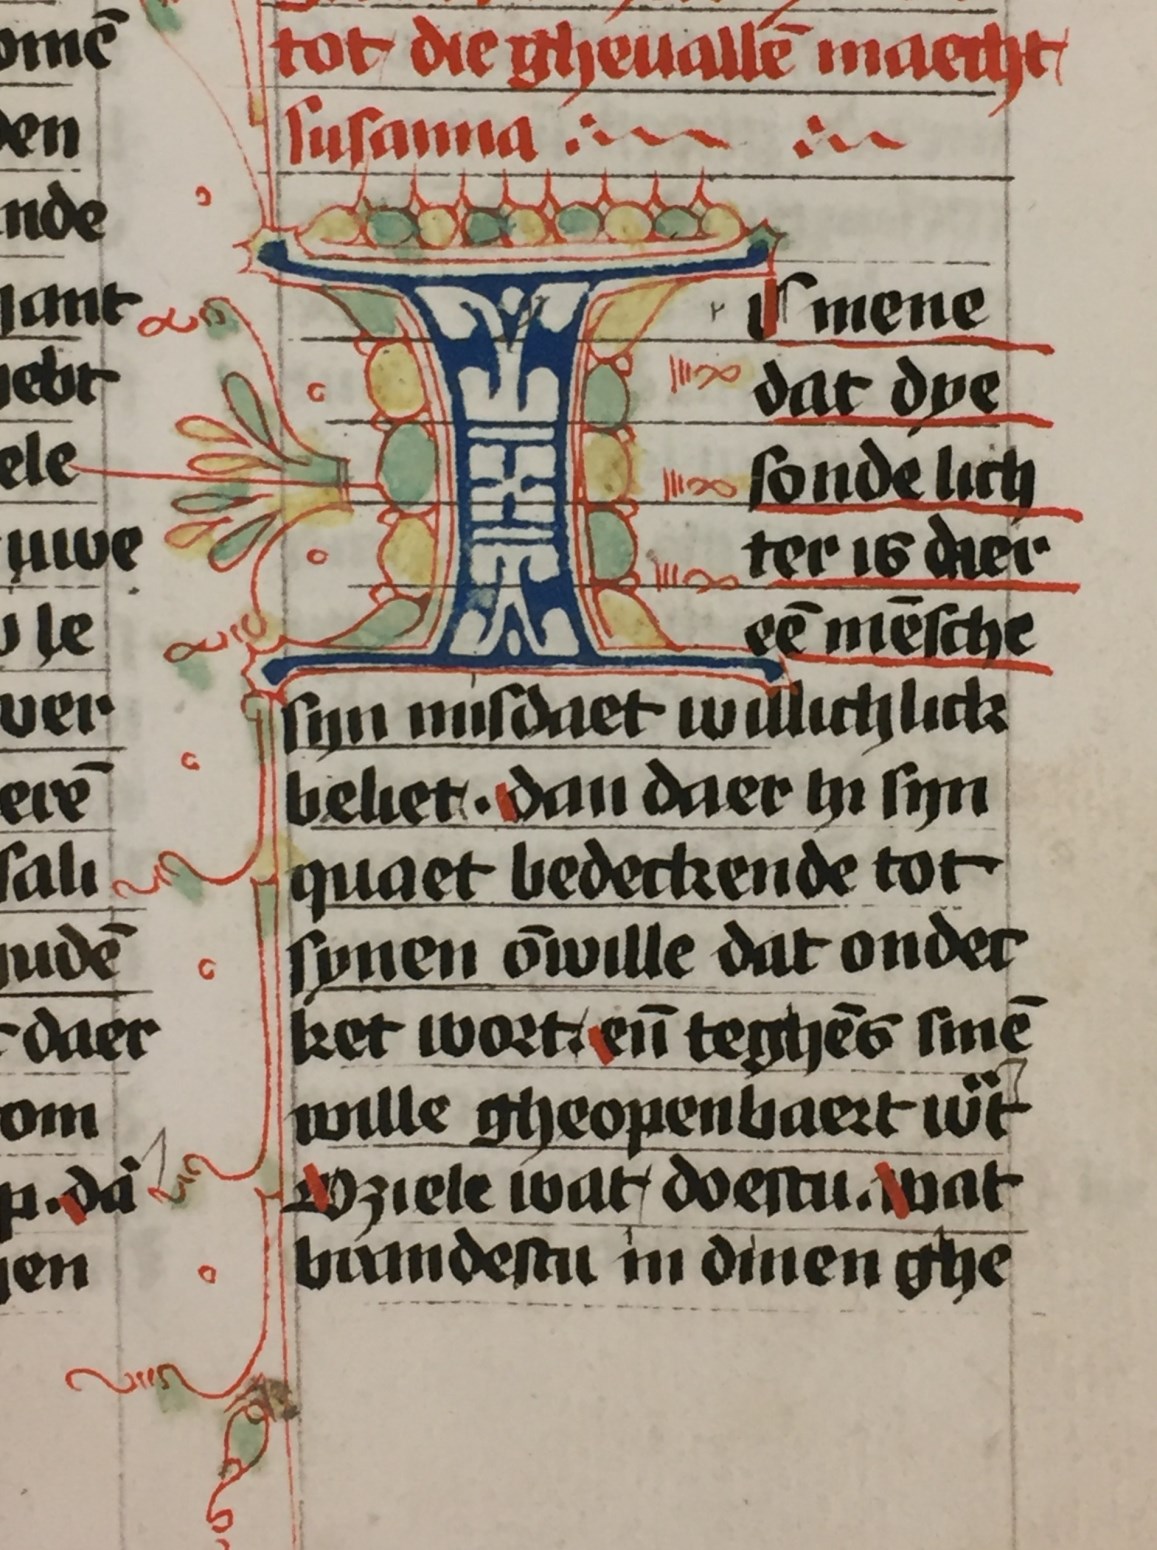 omē
den
nde
gant
hebt
ele
uwe
le
ver
erē
sali
gudē
daer
om
p. dā
gen
tot die gheuallē maecht
susanna
Is mene
dat dye
sonde lich
ter is dier
eē mēsche
sijn misdaet willichlick
beliet. dan daer hi sijn
quaet bedeckende tot
synen ōwille dat ondec
ket wort/ eñ teghēs sinē
wille gheopenbaert wt
O ziele wat doestu. wat
bijndestu in dinen ghe